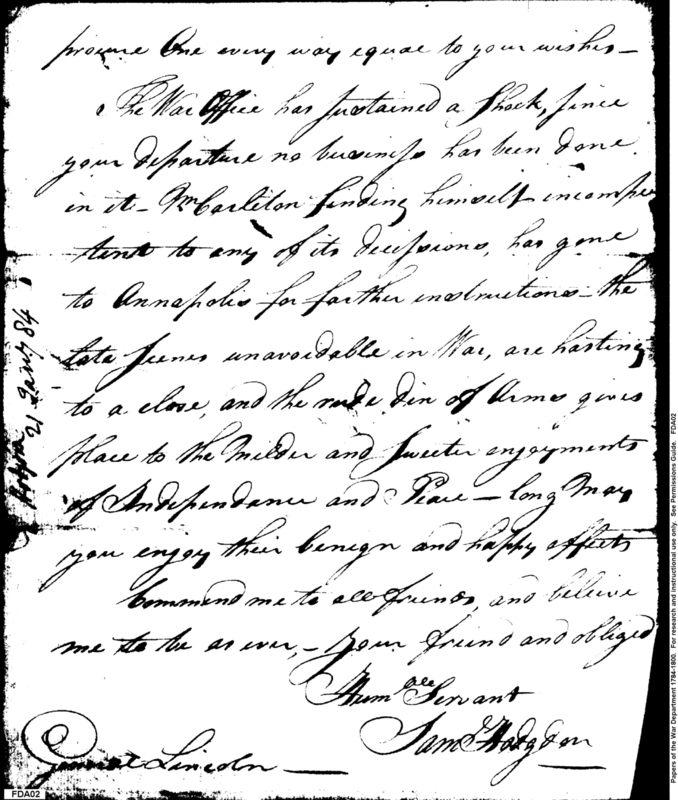 procure One every way equal to your wishes—
The War Office has sustained a Shock, since
your departure no business has been done
in it— Mr Carleton finding himself incompe
tent to any of its decissions, has gone
to Annapolis for farther instructions— the
late Scenes unavoidable in War, are hasting
to a close, and the rude din of Arms gives
place to the Milder and Sweeter enjoyments
of Independance and Peace— long May
you enjoy their benign and happy effects
Commend me to all friends, and believe
me to be as ever,— your friend and obliged
Humble Servant
Saml Hodgdon
General Lincoln
21 Jany 84
FDA02
Papers of the War Department 1784-1800. For research and instructional use only. See Permissions Guide. FDA02